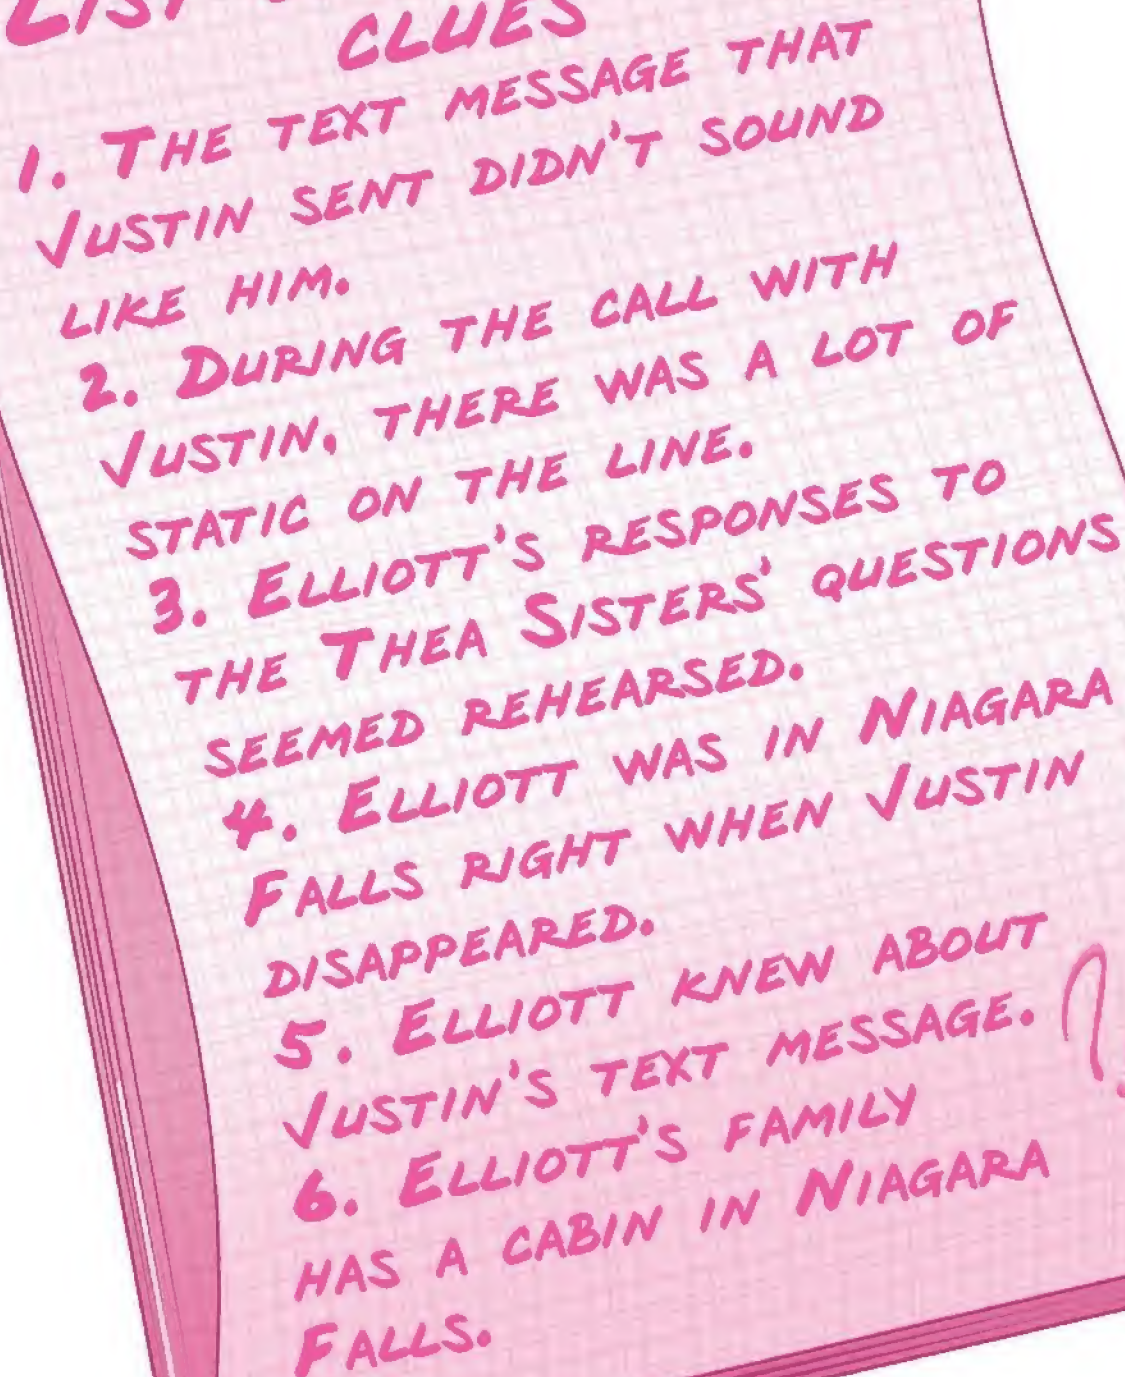 LIST
CLUES
1. THE TEXT MESSAGE THAT
JUSTIN SENT DIDN'T SOUND
LIKE HIM.
2. DURING THE CALL WITH
JUSTIN, THERE WAS A LOT OF
STATIC ON THE LINE.
3. ELLIOTT'S RESPONSES TO
THE THEA SISTERS' QUESTIONS
SEEMED REHEARSED.
4. ELLIOTT WAS IN NIAGARA
FALLS RIGHT WHEN JUSTIN
DISAPPEARED.
5. ELLIOTT KNEW ABOUT
JUSTIN'S TEXT MESSAGE.
?
6. ELLIOTT'S FAMILY
HAS A CABIN IN NIAGARA
FALLS.